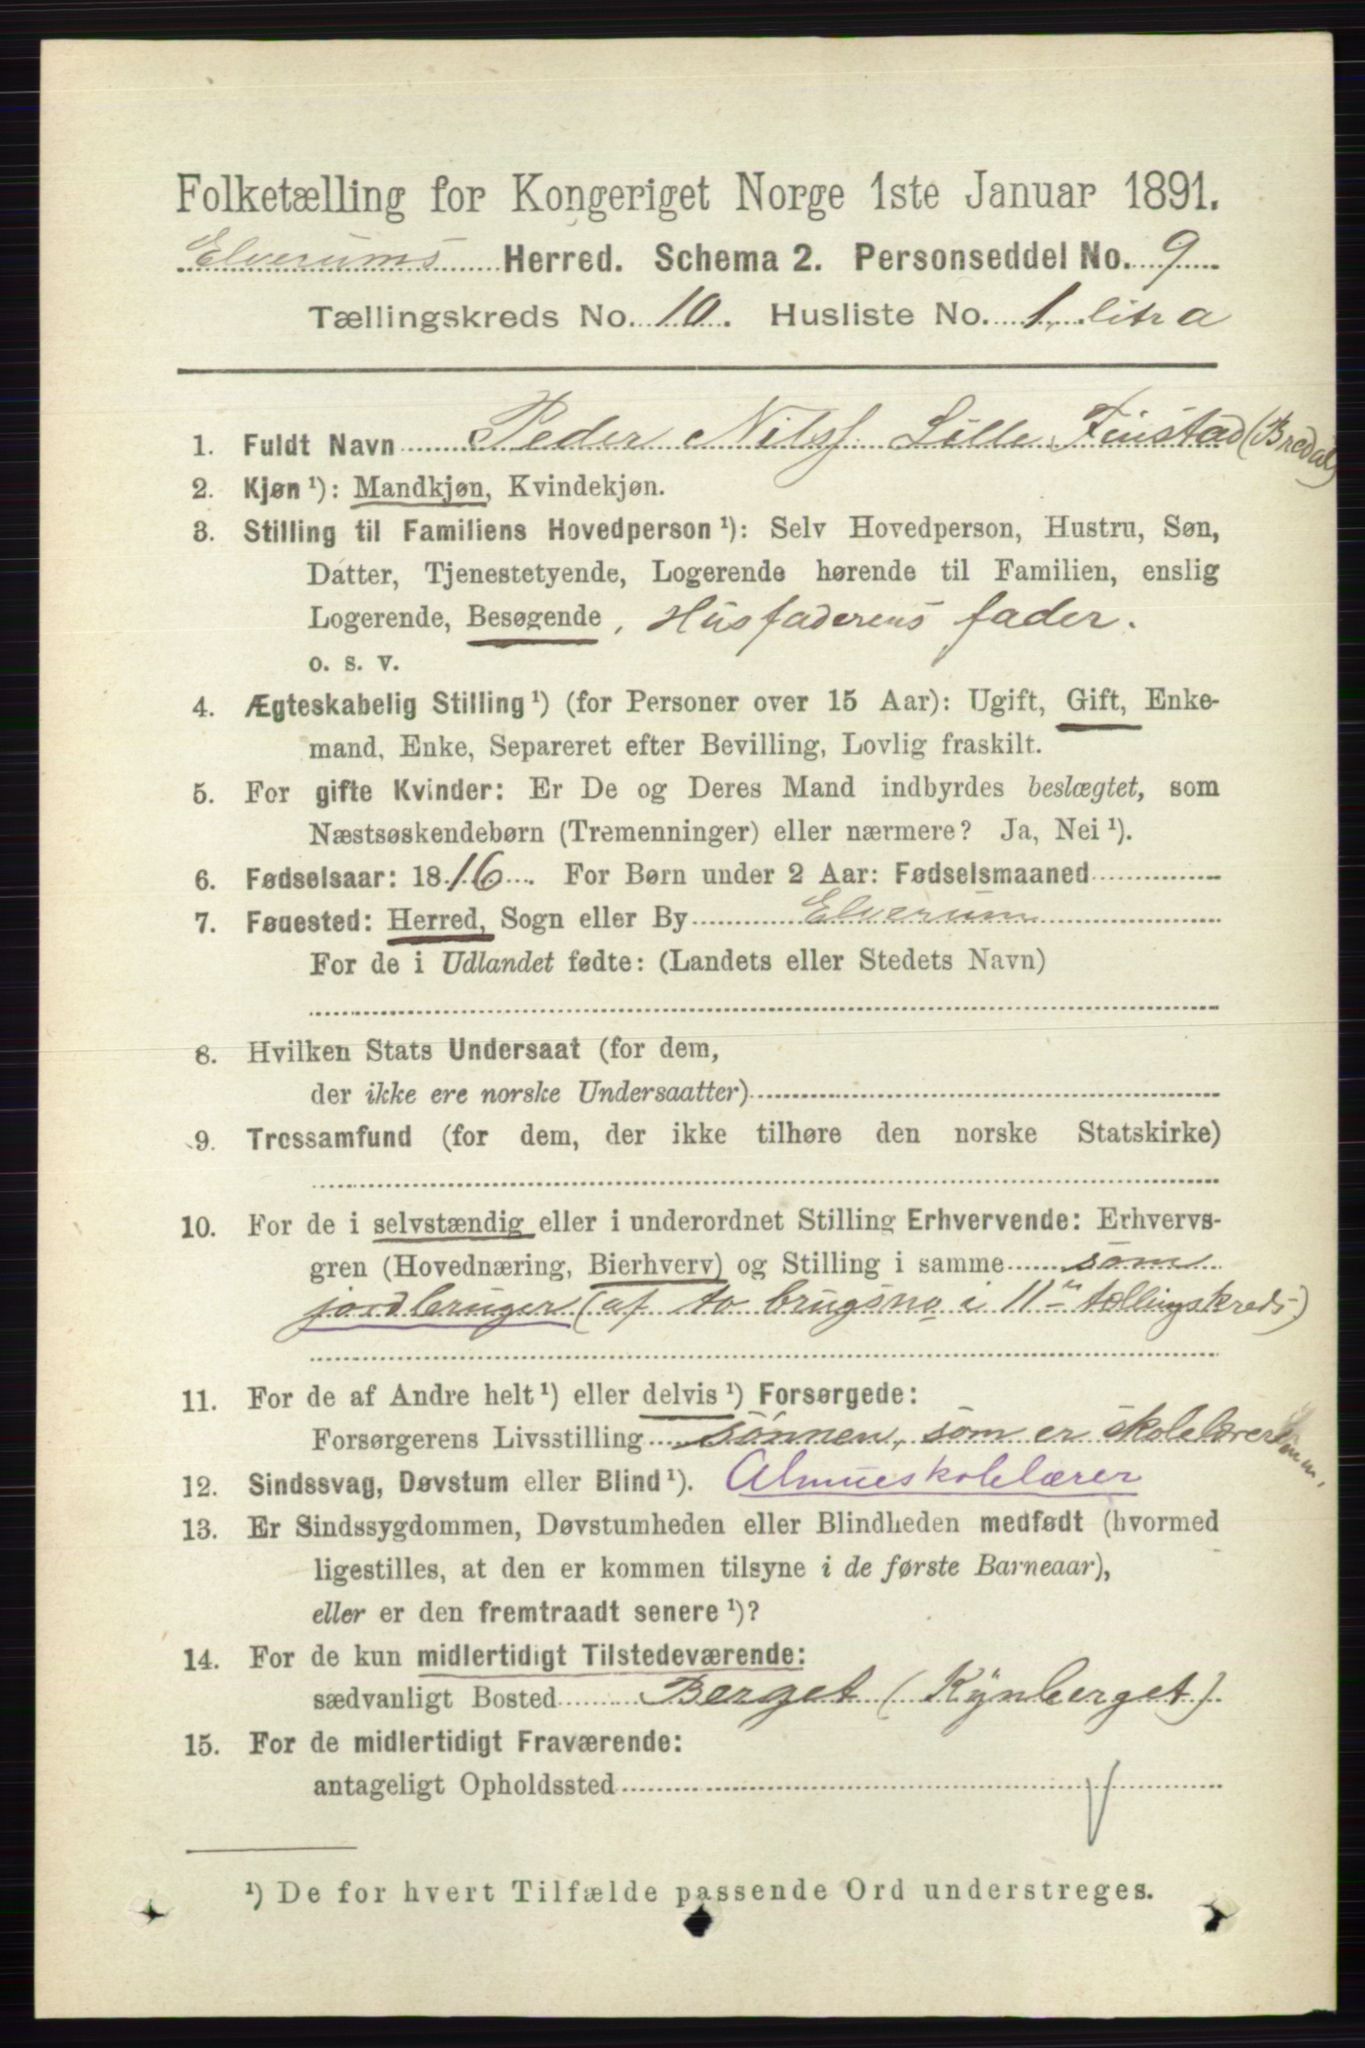 Folketælling for Kongeriget Norge 1ste Januar 1891.
Elverums Herred. Schema 2. Personseddel No. 9
Tællingskreds No. 10. Husliste No. 1, litr a
1. Fuldt Navn Peder Nilss. Lille Finstad (Bredal)
2. Kjøn¹): Mandkjøn, Kvindekjøn.
3. Stilling til Familiens Hovedperson¹): Selv Hovedperson, Hustru, Søn,
Datter, Tjenestetyende, Logerende hørende til Familien, enslig
Logerende, Besøgende, Husfaderens fader.
o. s. v.
4. Ægteskabelig Stilling¹) (for Personer over 15 Aar): Ugift, Gift, Enke-
mand, Enke, Separeret efter Bevilling, Lovlig fraskilt.
5. For gifte Kvinder: Er De og Deres Mand indbyrdes beslægtet, som
Næstsøskendebørn (Tremenninger) eller nærmere? Ja, Nei¹).
6. Fødselsaar: 1816. For Børn under 2 Aar: Fødselsmaaned
7. Føuested: Herred, Sogn eller By Elverum
For de i Udlandet fødte: (Landets eller Stedets Navn)
8. Hvilken Stats Undersaat (for dem,
der ikke ere norske Undersaatter)
9. Trossamfund (for dem, der ikke tilhøre den norske Statskirke)
10. For de i selvstændig eller i underordnet Stilling Erhvervende: Erhvervs-
gren (Hovednæring, Bierhverv) og Stilling i samme som
jordbruger (af to brugsno i 11te tællingskreds)
11. For de af Andre helt¹) eller delvis¹) Forsørgede:
Forsørgerens Livsstilling sønnen, som er skolelærer
12. Sindssvag, Døvstum eller Blind¹). Almueskolelærer
13. Er Sindssygdommen, Døvstumheden eller Blindheden medfødt (hvormed
ligestilles, at den er kommen tilsyne i de første Barneaar),
eller er den fremtraadt senere¹)?
14. For de kun midlertidigt Tilstedeværende:
sædvanligt Bosted Berget (Kynberget)
15. For de midlertidigt Fraværende:
antageligt Opholdssted
¹) De for hvert Tilfælde passende Ord understreges.